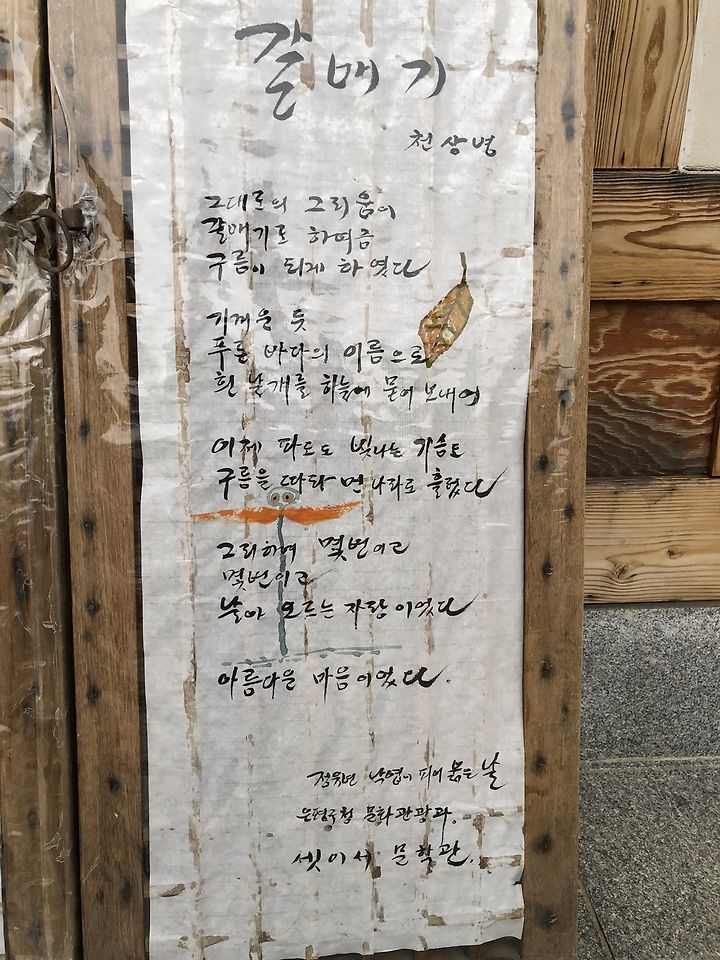 갈매기
천상병
그대로의 그리움이
갈매기로 하여금
구름이 되게 하였다
기꺼운 듯
푸른 바다의 이름으로
흰 날개를 하늘에 묻어 보내어
이제 파도도 빛나는 가슴도
구름을 따라 먼 나라로 흘렀다
그리하여 몇번이고
몇번이고
날아 오르는 자랑이었다
아름다운 마음이었다.
정유년 낙엽이 피어 붉은 날
은평구청 문화관광과,
셋이서 문학관.